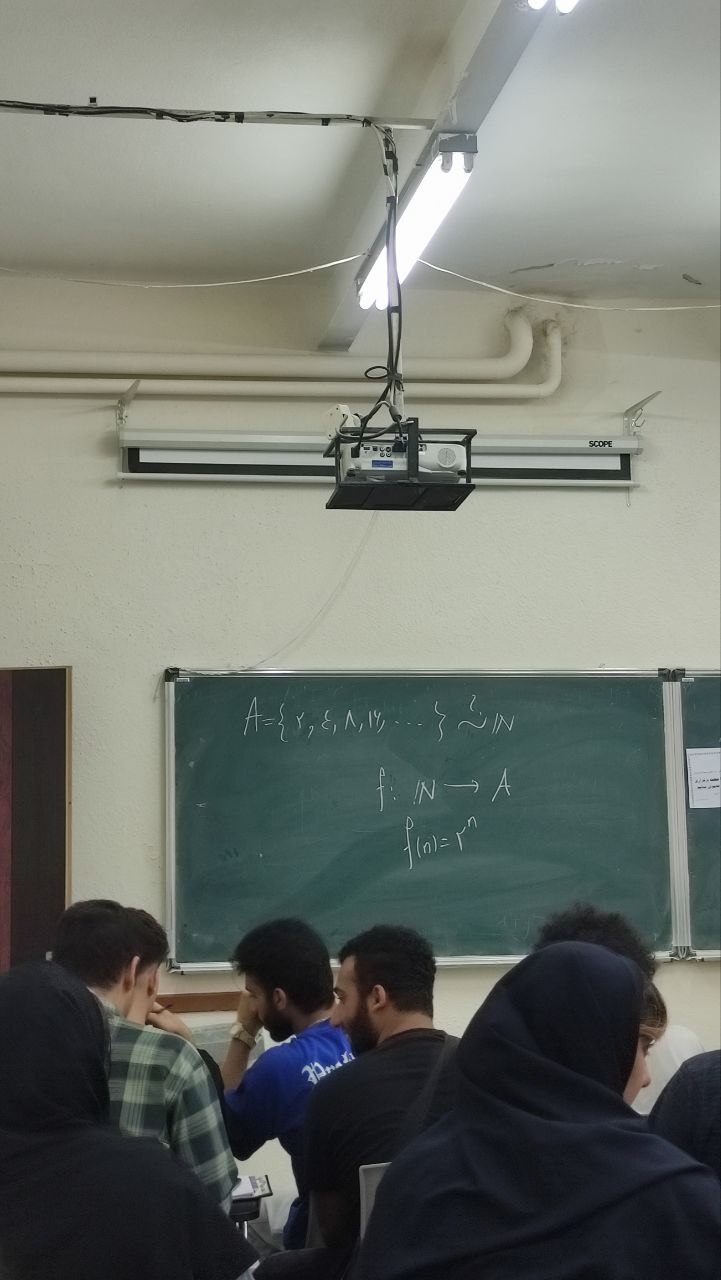 SCOPE
A={۲, ٤, ۸, ۱۶, ... } ≈? ℕ
f: ℕ → A
f(n)=۲ⁿ